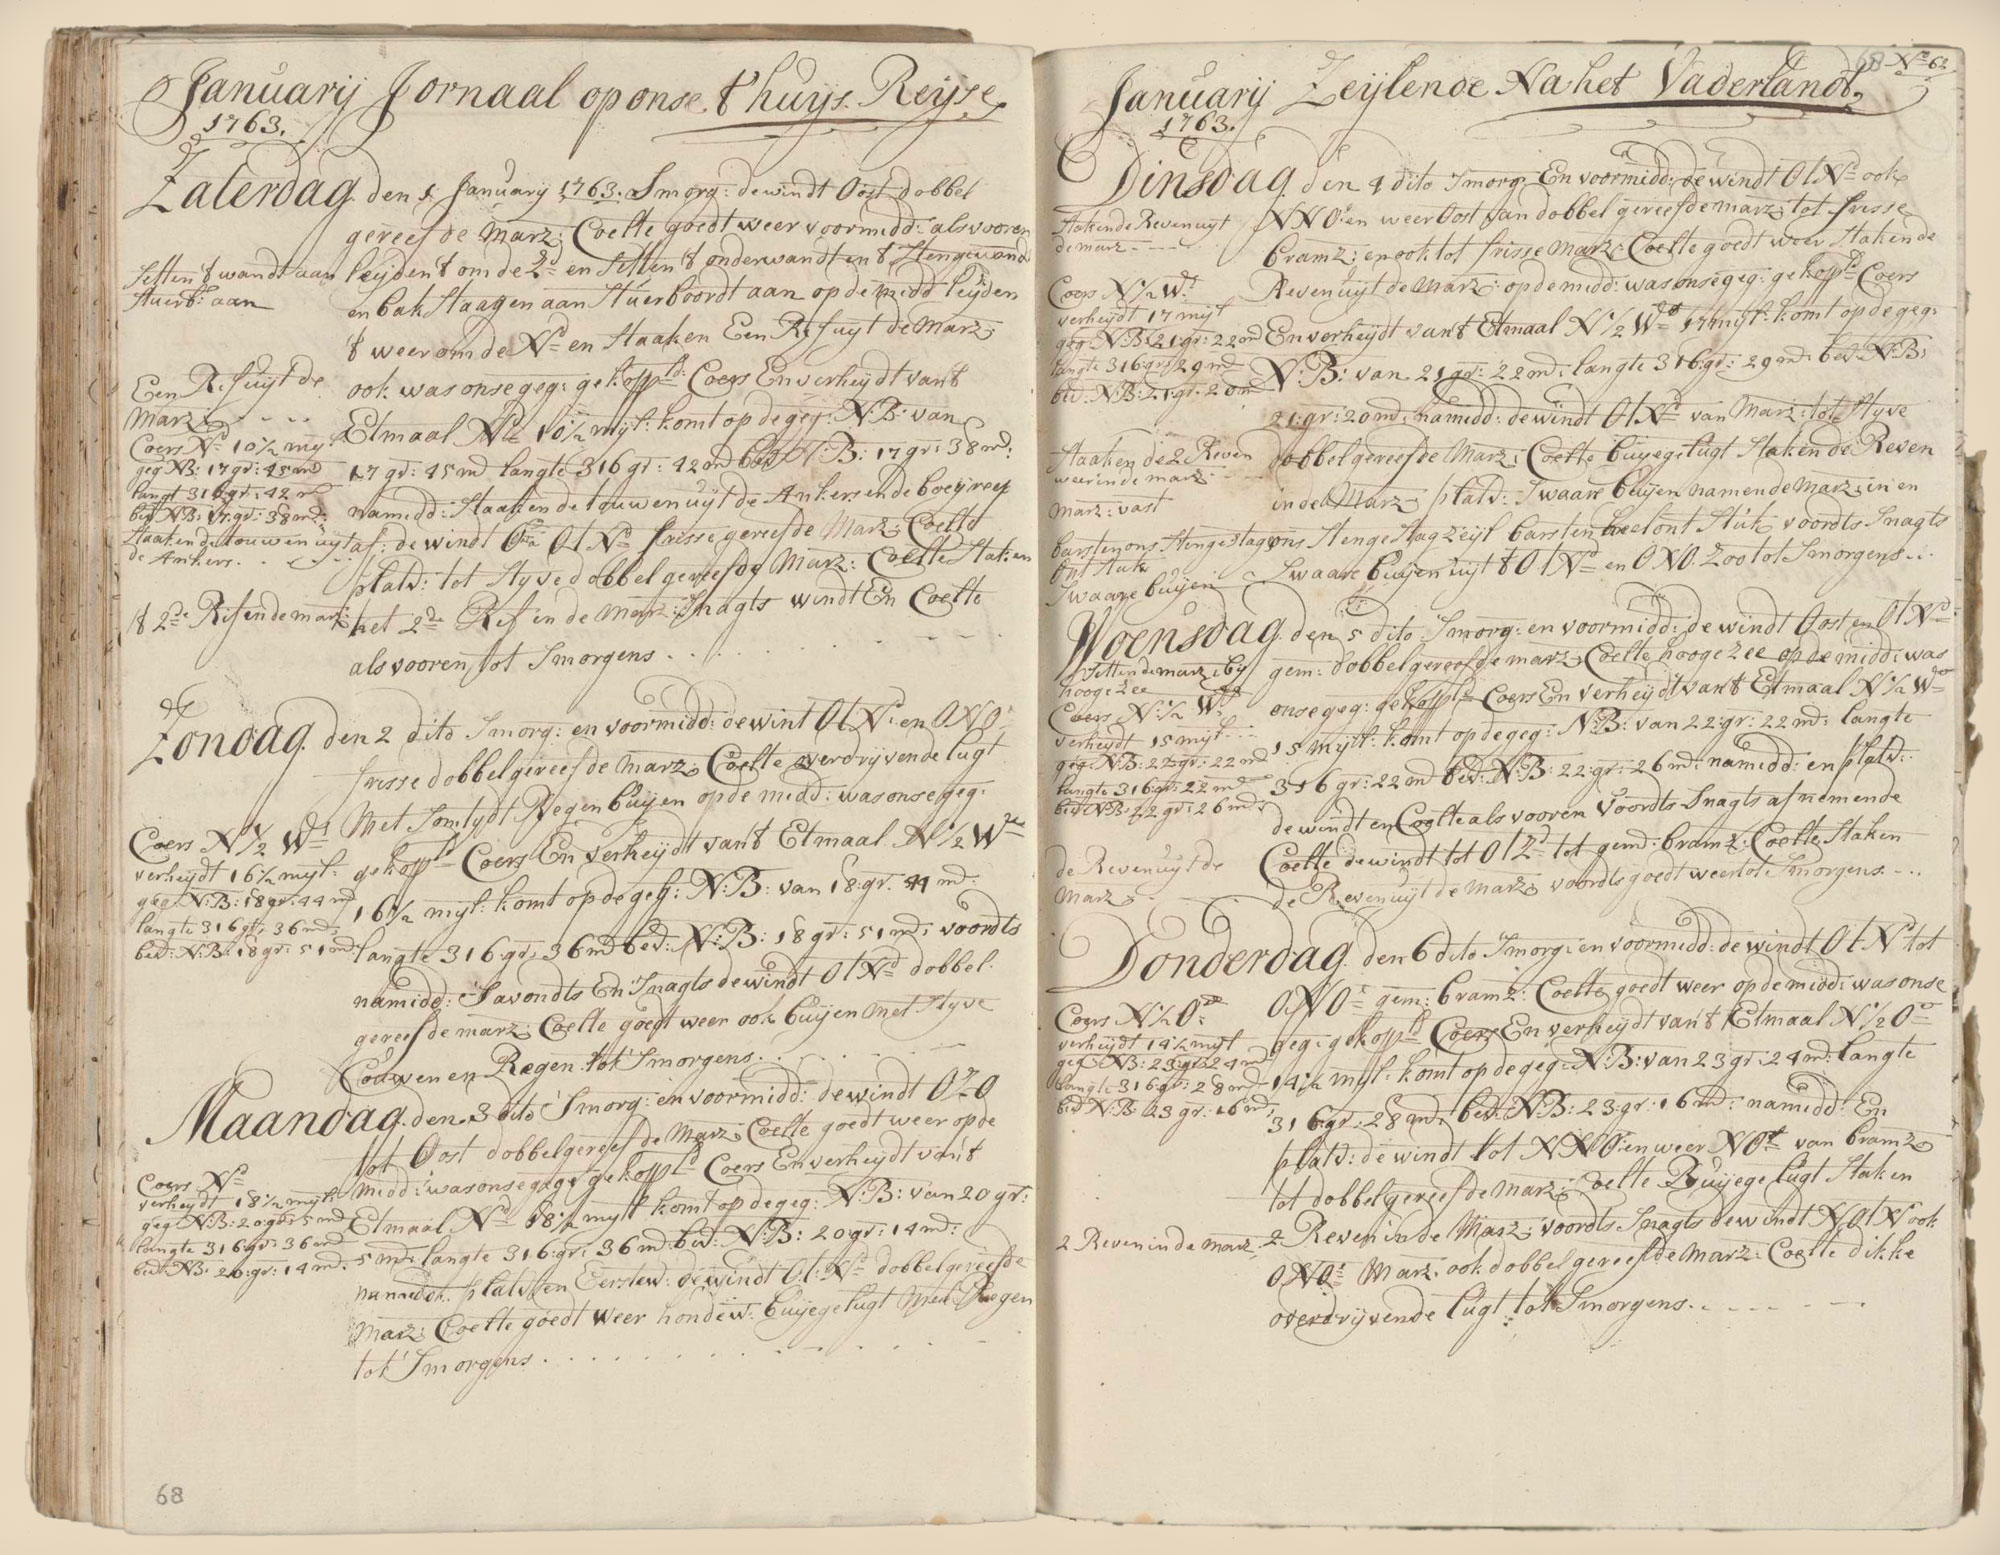 Januarij Jornaal op onse thuijs Reijse
1763.
Zaterdag den 1 Januarij 1763. Smorg: de windt Oost dobbel
gereefde Marz: Coelte goedt weer voormidd: als vooren
Setten t wandt aan
leijden t om de Zd en Setten t onderwandt en t Stengewandt
Stuerb: aan
en bakstaagen aan Stuerboordt aan op de midd leijden
t weer om de Nd en Staaken Een Rif uyt de Marz:
Een Rif uijt de
Marz: - - - -
ook was onse geg: gekoppld: Coers En verheijdt vant
Coers Nd 10½ mijl
Etmaal Nd 10½ mijl: komt op de geg: N:B: van
geg NB: 17 gr: 45 md
langt 316 gr: 42 md
17 gr: 45 md langte 316 gr: 42 md bed N:B: 17 gr: 38 md:
bed NB: 17 gr: 38 md:
namidd: Staaken de touwen uijt de Ankers en de boeijreep
Staaken de touwen uijt
de Ankers. . . . .
af: de windt Ot Nd frisse gereefde Marz: Coelte
platv: tot Styve dobbel gereefde Marz: Coelte Staken
t 2de Rif en de marz:
het 2de Rif in de Marz: Snagts windt En Coelte
als vooren tot Smorgens . . . . . . . .
Zondag den 2 dito Smorg: en voormidd: de wint Ot Nd: en ONO:
frisse dobbel gereefde Marz: Coelte verdrijvende lugt
Met Somtydt Regen buijen op de midd: was onse geg:
Coers N ½ Wt
gekoppld Coers En verheijdt vant Etmaal N ½ Wt
verheijdt 16½ mijl:
geg: N:B: 18 gr: 44 md
16½ mijl: komt op de geg: N:B: van 18: gr: 44 md:
langte 316 gr: 36 md:
bed: N:B: 18 gr: 51 md
langte 316: gr: 36 md bed: N:B: 18 gr: 51 md: voordts
namidd: Savondts En Snagts de windt Ot Nd dobbel
gereefde marz: Coelte goedt weer ook buijen met Styve
Couwen en Regen tot Smorgens . . . . . .
Maandag den 3 dito Smorg: en voormidd: de windt OZO
tot Oost dobbel gereefde Marz: Coelte goedt weer op de
Coers Nd
midd: was onse gegs gekoppld Coers En verheijdt vant
verheijdt 18½ mijl:
geg: N:B: 20 gr: 5 md
Etmaal Nd 18½ mijl komt op de geg: N:B: van 20 gr:
langte 316 gr: 36 md
bed: NB: 20: gr: 14 md:
5 md: langte 316: gr: 36 md bed: N:B: 20 gr: 14 md:
namidd: platv: en Eerstew: de windt Ot: Nd dobbel gereefde
Marz: Coelte goedt weer hondew: buijege lugt Met Regen
tot Smorgens . . . . . . . . .
68
Januarij Zeijlende Na het Vaderlandt
No 62
1763.
Dinsdag den 4 dito Smorg: En voormidd: de windt Ot Nd ook
Staken de Reven uyt
de marz - - - -
NNO: en weer Oost van dobbel gereefde marz: tot frisse
bramz: en ook tot frisse Marz: Coelte goedt weer Staken de
Coers N ½ Wt
Reven uijt de Marz: op de midd: was onse geg: gekoppld Coers
verheydt 17 mijl
En verheijdt vant Etmaal N ½ Wt 17 mijl: komt op de geg:
geg: N:B: 21: gr: 22 md
langte 316 gr: 29 md
N:B: van 21 gr: 22 md: langte 316: gr: 29 md: bed: N:B:
bed: N:B: 21: gr: 20 md
21: gr: 20 md: namidd: de windt Ot Nd van Marz: tot Styve
Staaken de 2 Reven
weer in de marz:
dobbel gereefde Marz: Coelte buijege lugt Staken de Reven
Marz: vast
in de Marz: platv: Swaare buijen namen de Marz: in en
barsten ons Stengestag
ont Stuk
ons Stenge Stag zeijl barsten heel ont Stuk voordts Snagts
Swaare buijen
Swaare buijen uijt t Ot Nd en ONO: Zoo tot Smorgens . . .
Woensdag den 5 dito Smorg: en voormidd: de windt Oost en Ot Nd
Setten de marz: by
hooge Zee
gem: dobbel gereefde marz: Coelte hooge Zee op de midd: was
Coers N: ½ Wt
onse geg: gekoppld Coers En verheijdt vant Etmaal N ½ Wt
verheydt 15 mijl: - - -
15 mijl: komt op de geg: N:B: van 22: gr: 22 md: langte
geg: N:B: 22: gr: 22 md
langte 316: gr: 22 md
316 gr: 22 md bed: N:B: 22: gr: 26 md: namidd: en platv:
bed: N:B: 22 gr: 26 md:
de windt en Coelte als vooren Voordts Snagts afnemende
Coelte de windt tot Ot Zd tot gemd: bramz: Coelte Staken
de Reven uijt de
Marz
de Reven uijt de Marz: voordts goedt weer tot Smorgens . - . .
Donderdag den 6 dito Smorg: en voormidd: de windt Ot Nd tot
ONO: gem: bramz: Coelte goedt weer op de midd: was onse
Coers N ½ Ot
geg: gekoppld Coers En verheijdt vant Etmaal N ½ Ot
verheydt 14½ mijl
geg: NB: 23: gr: 24 md
14½ mijl: komt op de geg: N:B: van 23 gr: 24 md: langte
langte 316: gr: 28 md
bed N:B: 23 gr: 16 md:
316 gr: 28 md: bed: N:B: 23: gr: 16 md: namidd: En
platv: de windt tot NNO: en weer NOt van bramz:
tot dobbel gereefde Marz: Coelte Buijege lugt Staken
2 Reven in de marz
2 Reven in de Marz: voordts Snagts de windt NOt N ook
ONO: Marz: ook dobbel gereefde Marz: Coelte dikke
overdrijvende lugt tot Smorgens . . - - - -